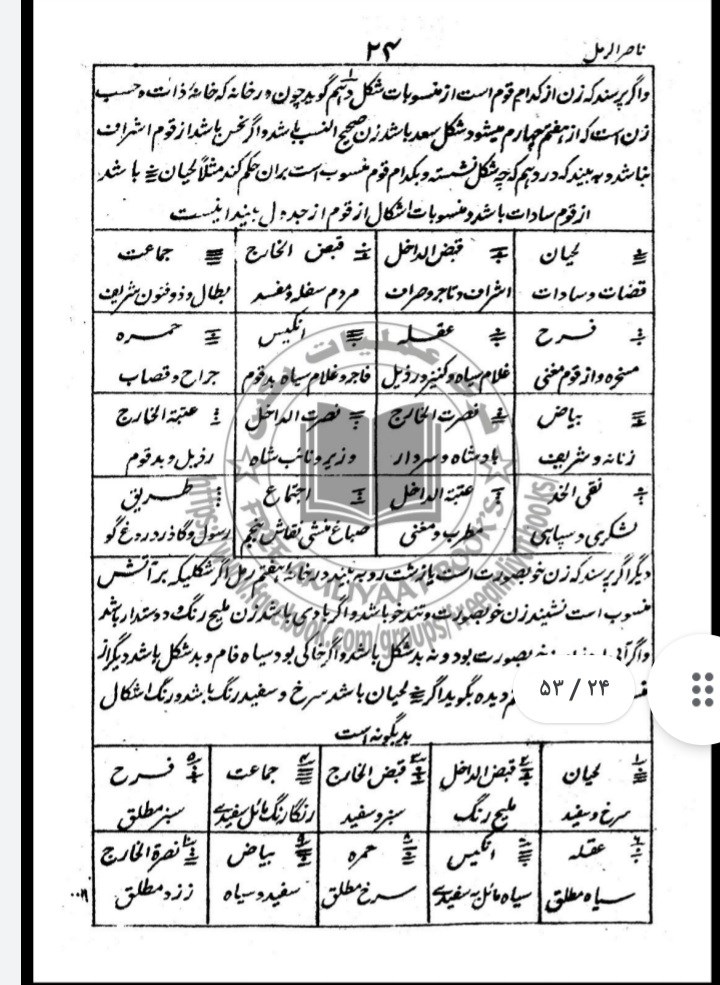 ناصر الرمل
۲۴
واگر پرسند که زن از کدام قوم است از منسوبات شکل دہم گوید چون در خانہ کہ خانۂ ذات و حسب
زن است کہ از ہفتم چہارم میشود شکل سعد باشد زن صحیح النسب باشد و اگر نحس باشد از قوم اشراف
نباشد و بہ بیند کہ در دہم کہ چہ شکل نشستہ و بکدام قوم منسوب است بران حکم کند مثلاً لحیان باشد
از قوم سادات باشد و منسوبات اشکال از قوم از جدول بیند اینست
لحیان قبض الداخل قبض الخارج جماعت
قضات و سادات اشراف و تاجر و صراف مردم سفلہ و مفسد بطال و ذوفنون شریف
فرح عقلہ انکیس حمرہ
مسخرہ و از قوم مغنی غلام سیاہ و کنیز و رذیل فاجر و غلام سیاہ بد قوم جراح و قصاب
بیاض نصرت الخارج نصرت الداخل عتبۃ الخارج
زنانہ و شریف بادشاہ و سردار وزیر و نائب شاہ رذیل و بد قوم
نقی الخد عتبۃ الداخل اجتماع طریق
لشکری و سپاہی مطرب و مغنی صباغ منشی نقاش منجم رسول و گاذر دروغ گو
دیگر اگر پرسند کہ زن خوبصورت است یا زشت رو بہ بیند در خانۂ ہفتم رمل اگر شکلیکہ بر آتش
منسوب است نشیند زن خوبصورت و تند خو باشد و اگر بادی باشد زن ملیح رنگ و دوستدار باشد
واگر آبی صورت بود و نہ بد شکل باشد و اگر خاکی بود سیاہ فام و بد شکل باشد دیگر از
دیدہ بگوید اگر لحیان باشد سرخ و سفید رنگ باشد و رنگ اشکال
بدیگونہ است
۵۳ / ۲۴
۱ لحیان ۲ قبض الداخل ۳ قبض الخارج ۴ جماعت ۵ فرح
سرخ و سفید ملیح رنگ سبز و سفید رنگا رنگ مائل سفیدے سبز مطلق
۶ عقلہ ۷ انکیس ۸ حمرہ ۹ بیاض ۱۰ نصرة الخارج
سیاہ مطلق سیاہ مائل بہ سفیدے سرخ مطلق سفید و سیاہ زرد مطلق
عملیات
FREE AMLIYAAT BOOK'S
https://www.facebook.com/groups/freeamliyatbooks/